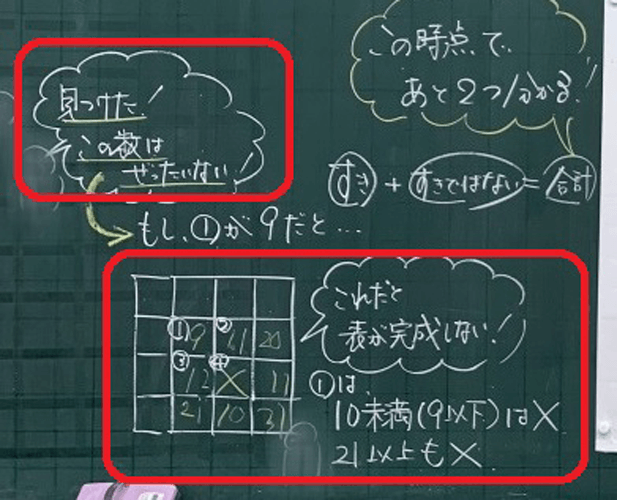 見つけた!
この数は
ぜったいない!
この時点で、
あと2つ分かる!
すき + すきではない = 合計
もし、①が9だと…
①9 ② 11 20
③ 12 ④ × 11
21 10 31
これだと
表が完成しない!
①は
10未満(9以下)は×
21以上も×